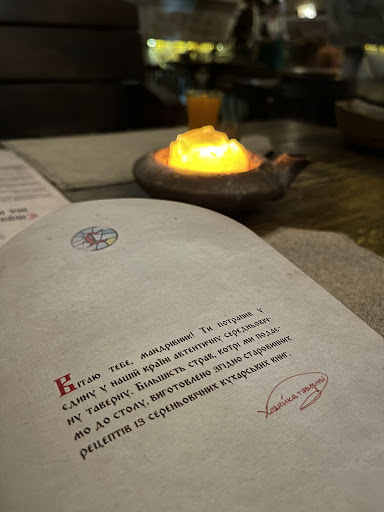 Вітаю тебе, мандрівник! Ти потрапив у
єдину у нашій країні автентичну середньовіч-
ну таверну. Більшість страк, котрі ми подає-
мо до столу, виготовлено згідно старовинних
рецептів із серень​овічних кухарських книг.
Хозяйка таверны